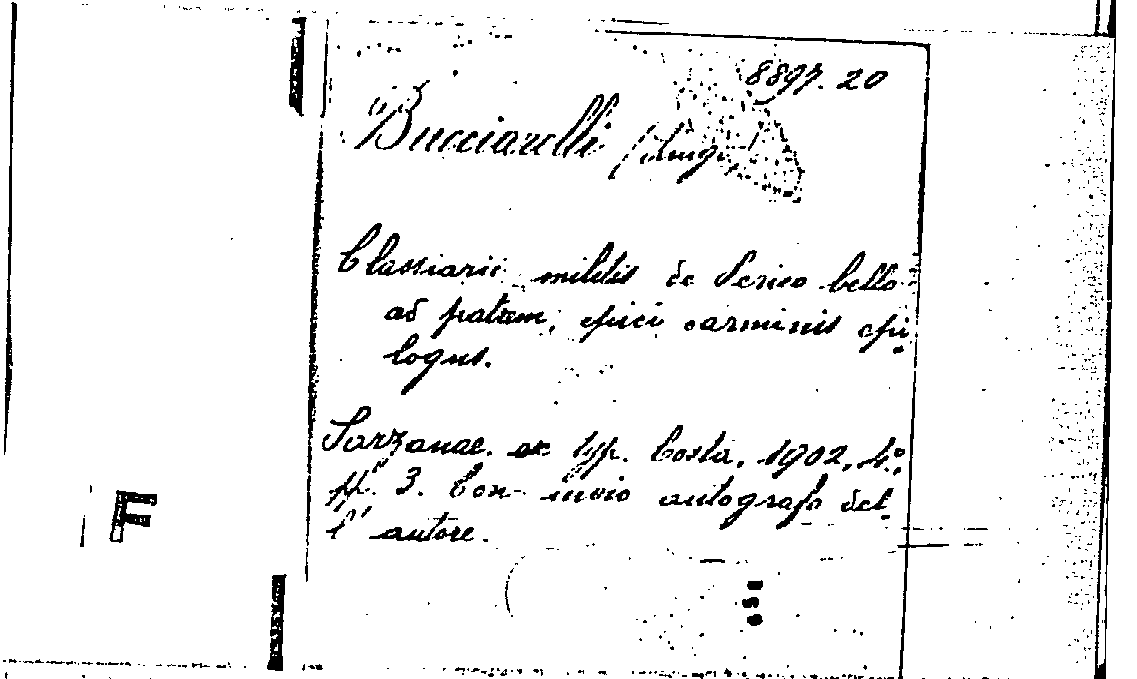 8897.20
Bucciarelli (Luigi)
Classiarii militis de Serico bello
ad patrem, epici carminis epi-
logus.
Sarzanae. ex typ. Costa, 1902, 4°,
pp. 3. Con invio autografo del-
l'autore.
F